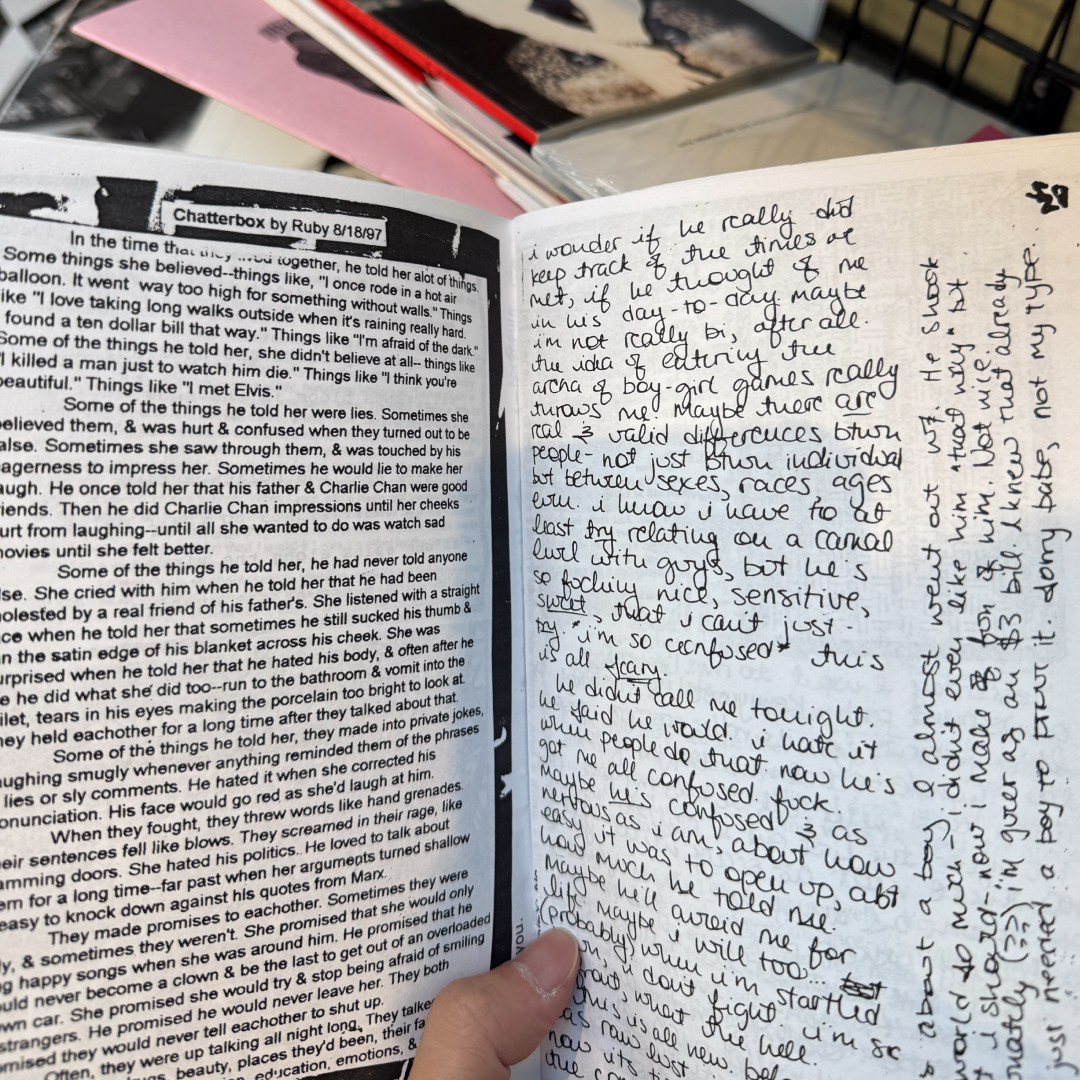 Chatterbox by Ruby 8/18/97
In the time that they lived together, he told her alot of things.
Some things she believed--things like, "I once rode in a hot air
balloon. It went way too high for something without walls." Things
like "I love taking long walks outside when it's raining really hard.
found a ten dollar bill that way." Things like "I'm afraid of the dark."
Some of the things he told her, she didn't believe at all-- things like
"I killed a man just to watch him die." Things like "I think you're
beautiful." Things like "I met Elvis."
Some of the things he told her were lies. Sometimes she
believed them, & was hurt & confused when they turned out to be
alse. Sometimes she saw through them, & was touched by his
eagerness to impress her. Sometimes he would lie to make her
augh. He once told her that his father & Charlie Chan were good
riends. Then he did Charlie Chan impressions until her cheeks
urt from laughing--until all she wanted to do was watch sad
movies until she felt better.
Some of the things he told her, he had never told anyone
lse. She cried with him when he told her that he had been
molested by a real friend of his father's. She listened with a straight
ce when he told her that sometimes he still sucked his thumb &
n the satin edge of his blanket across his cheek. She was
urprised when he told her that he hated his body, & often after he
e he did what she did too--run to the bathroom & vomit into the
ilet, tears in his eyes making the porcelain too bright to look at.
hey held eachother for a long time after they talked about that.
Some of the things he told her, they made into private jokes,
aughing smugly whenever anything reminded them of the phrases
lies or sly comments. He hated it when she corrected his
onunciation. His face would go red as she'd laugh at him.
When they fought, they threw words like hand grenades.
eir sentences fell like blows. They screamed in their rage, like
amming doors. She hated his politics. He loved to talk about
em for a long time--far past when her arguments turned shallow
easy to knock down against his quotes from Marx.
They made promises to eachother. Sometimes they were
ly, & sometimes they weren't. She promised that she would only
g happy songs when she was around him. He promised that he
ould never become a clown & be the last to get out of an overloaded
wn car. She promised she would try & stop being afraid of smiling
strangers. He promised he would never leave her. They both
omised they would never tell eachother to shut up.
Often, they were up talking all night long. They talked
beauty, places they'd been, their
education, emotions, &
i wonder if he really did
keep track of the times we
met, if he thought of me
in his day-to-day. maybe
im not really bi, after all.
the idea of entering the
arena of boy-girl games really
throws me. maybe there are
real & valid differences btwn
people- not just btwn individual
but between sexes, races ages
even. i know i have to at
least try relating on a carnal
level with guys, but he's
so fucking nice, sensitive,
sweet, that i can't just-
try. *i'm so confused* this
is all scary.
he didn't call me tonight.
he said he would. i hate it
when people do that. now he's
got me all confused. fuck.
maybe he's confused & as
nervous as i am, about how
easy it was to open up, abt
how much he told me.
maybe he'll avoid me for
life. maybe i will too...
(probably) when i'm startled
i dont fight. i'm so
what the hell.
this is all new.
now its
about a boy I almost went out w/? He shook
world so much- i didn't even like him *that way* bt
i should- now i make fun of him. Not nice.
(??) i'm queer as an $3 bill. I knew that already
just needed a boy to prove it. donny babe, not my type.